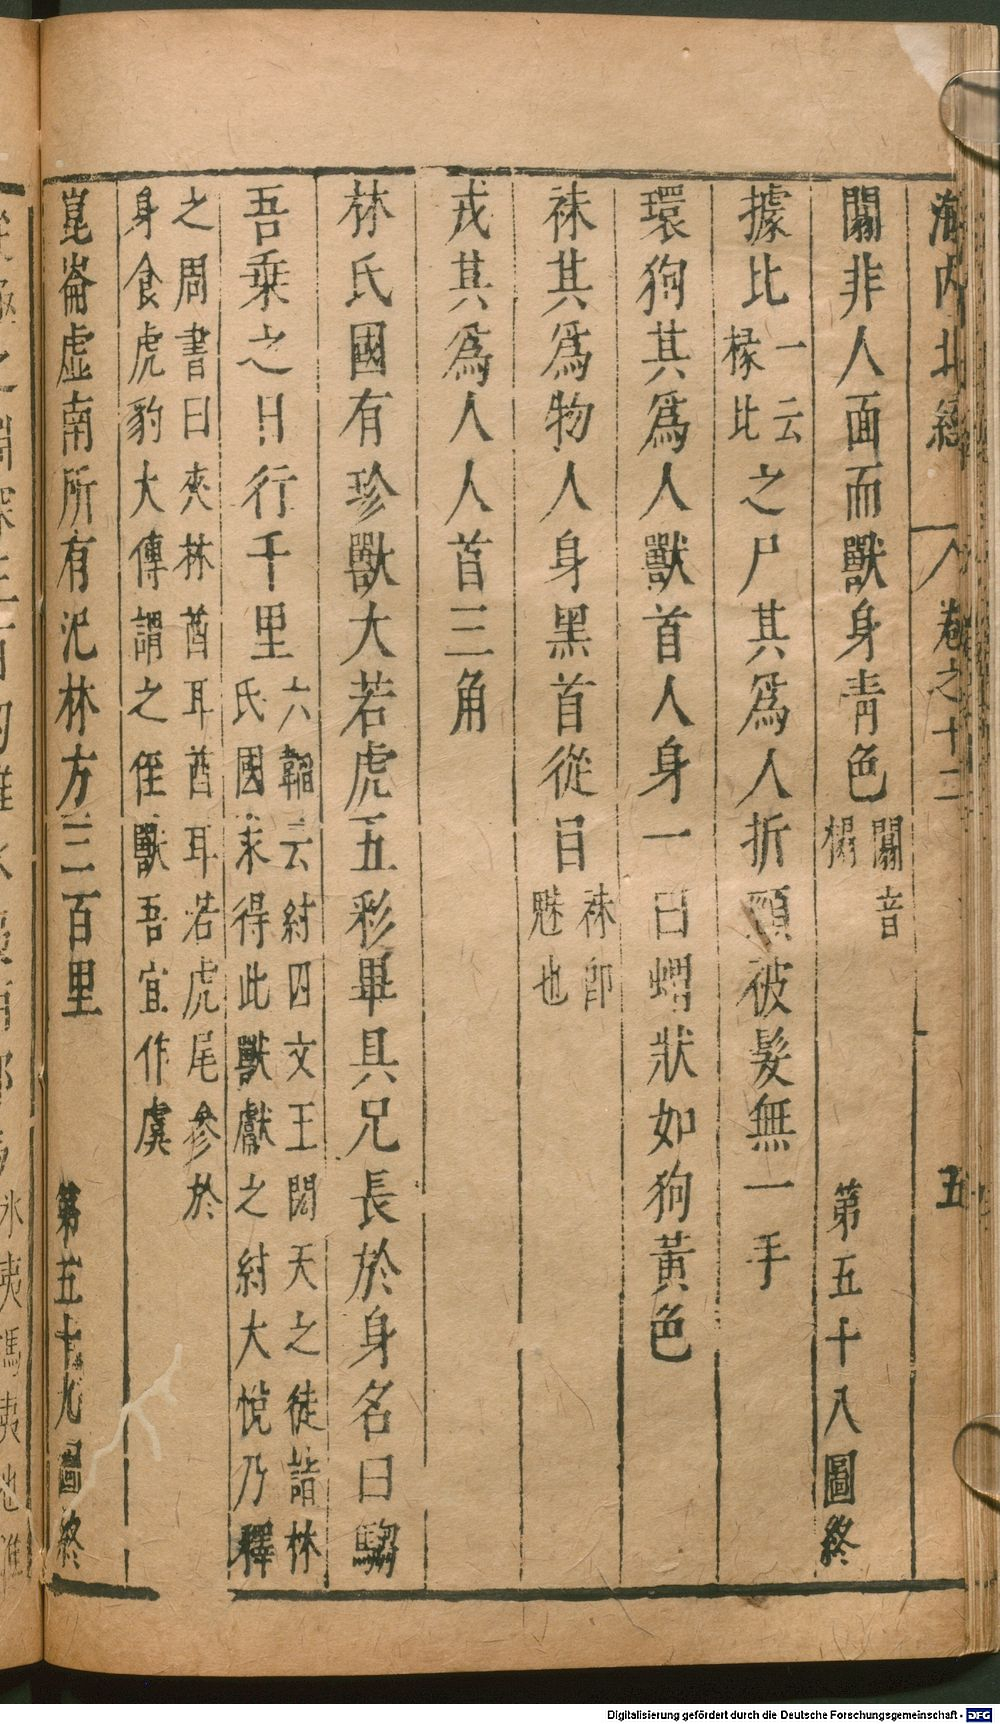 海內北經 卷之十二 五
闒非人面而獸身靑色闒音榻 第五十八圖終
據比一云掾比之尸其爲人折頸被髮無一手
環狗其爲人獸首人身一曰蝟狀如狗黃色
袜其爲物人身黑首從目袜卽魅也
戎其爲人人首三角
林氏國有珍獸大若虎五彩畢具兄長於身名曰騶
吾乗之日行千里六韜云紂囚文王閎夭之徒詣林氏國求得此獸獻之紂大悅乃釋
之周書曰夾林酋耳酋耳若虎尾參於身食虎豹大傳謂之侄獸吾宜作虞
崑崙虛南所有氾林方三百里 第五十九圖終
Digitalisierung gefördert durch die Deutsche Forschungsgemeinschaft - DFG